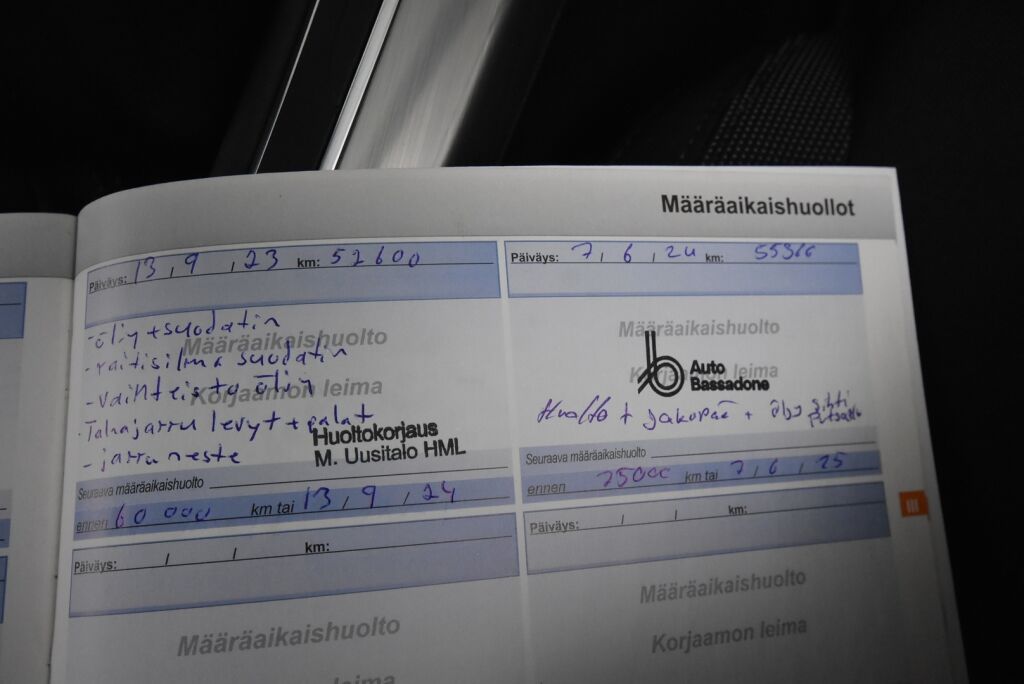 Määräaikaishuollot
Päiväys: 13 / 9 / 23 km: 52600
-öljy + suodatin
Määräaikaishuolto
-raitisilma suodatin
Korjaamon leima
-vaihteisto öljy
-Takajarru levyt + palat
Huoltokorjaus
M. Uusitalo HML
-jarruneste
Seuraava määräaikaishuolto
ennen 60 000 km tai 13 / 9 / 24
Päiväys: / / km:
Määräaikaishuolto
leima
Päiväys: 7 / 6 / 24 km: 55366
Määräaikaishuolto
Korjaamon leima
Auto
Bassadone
Huolto + jakopää + öljy sihti
Seuraava määräaikaishuolto
ennen 75000 km tai 7 / 6 / 25
III
Päiväys: / / km:
Määräaikaishuolto
Korjaamon leima